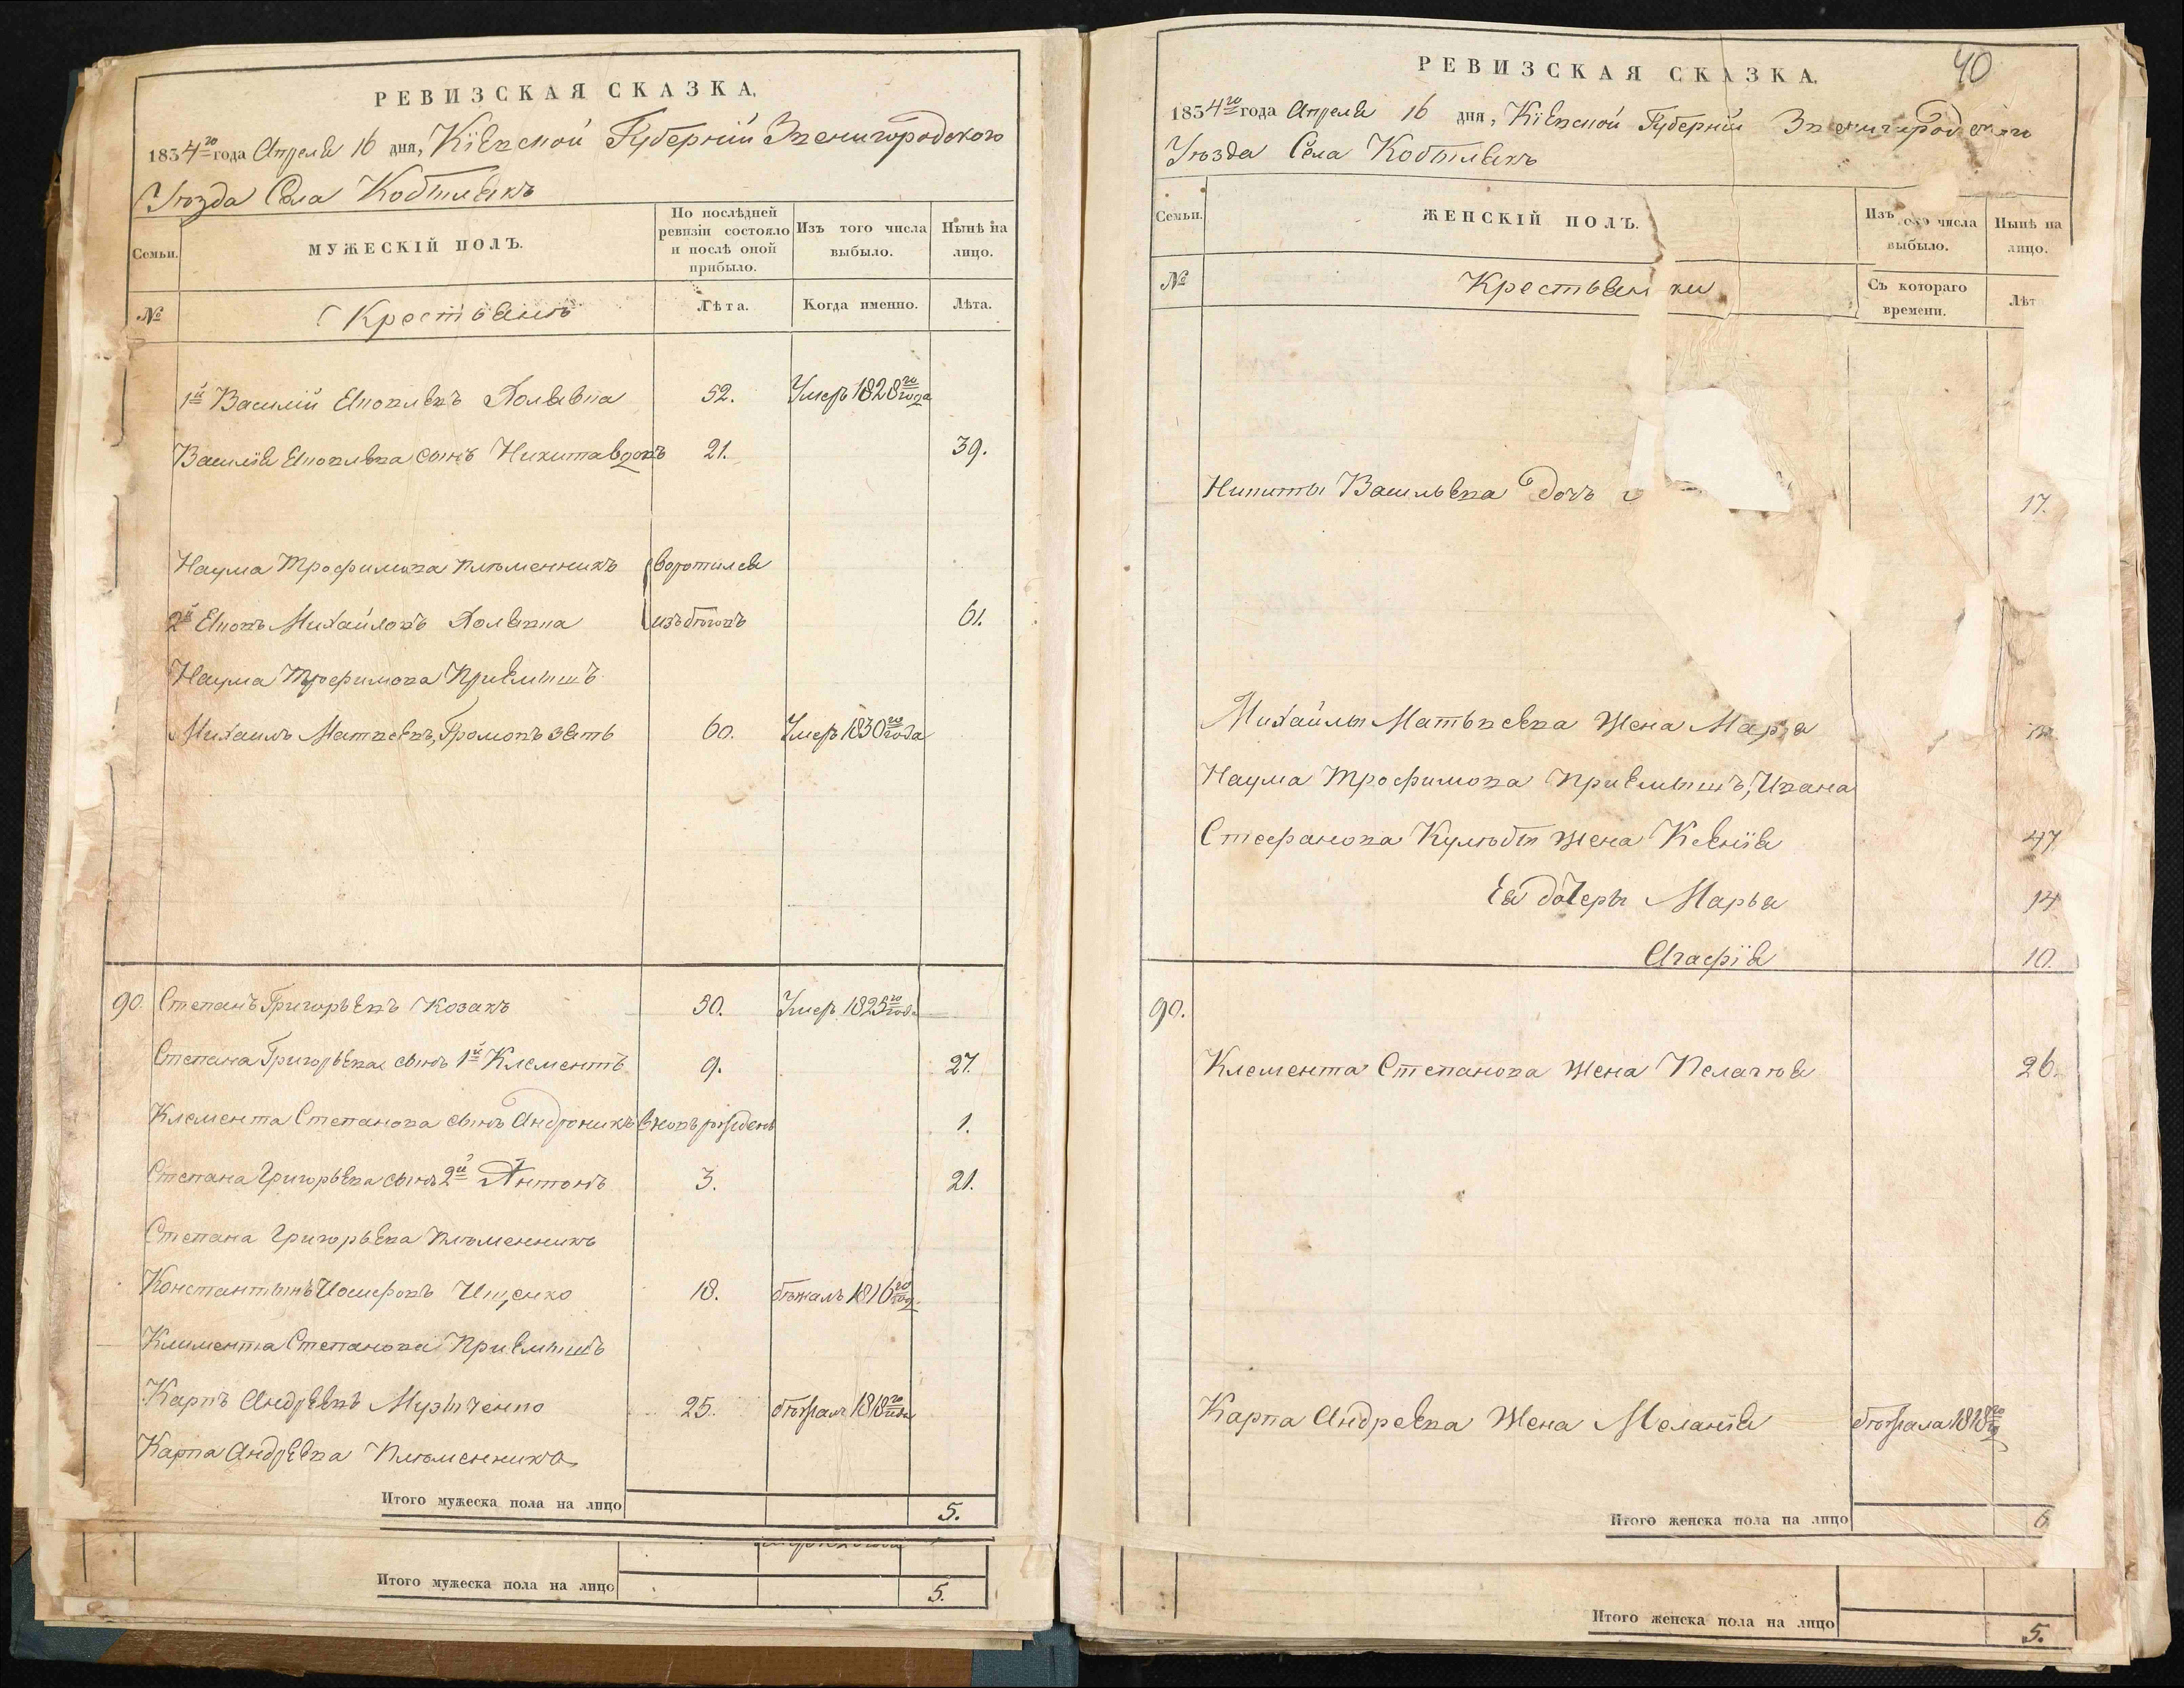 РЕВИЗСКАЯ СКАЗКА.
1834го года Апреля 16 дня, Кіевской Губерніи Звенигородского
Уѣзда Села Кобылякъ
Семьи.
МУЖЕСКІЙ ПОЛЪ.
По послѣдней ревизіи состояло и послѣ оной прибыло.
Изъ того числа выбыло.
Нынѣ на лицо.
№
Крестьянъ
Лѣта.
Когда именно.
Лѣта.
1й Василій Яковлевъ 52. Умеръ 1828го года
Василія Яковлева сынъ Никита вдовъ 21. 39.
Наума Трофимова племенникъ воротился
2й Яковъ Михайловъ изъ бѣговъ 61.
Наума Трофимова Приемышъ
Михаилъ Матвеевъ, Громовъ зять 60. Умеръ 1830го года
90. Степанъ Григорьевъ Козакъ 30. Умеръ 1825го года
Степана Григорьева сынъ 1й Клементъ 9. 27.
Клемента Степанова сынъ Андроникъ вновь рожденъ 1.
Степана Григорьева сынъ 2й Антонъ 3. 21.
Степана Григорьева племенникъ
Константынъ Иосифовъ Ищенко 18. бѣжалъ 1816го год.
Климента Степанова Приемышъ
Карпъ Андреевъ 25. бѣжалъ 1818го года
Карпа Андреева Племенника
Итого мужеска пола на лицо 5.
Итого мужеска пола на лицо 5.
40
РЕВИЗСКАЯ СКАЗКА.
1834го года Апреля 16 дня, Кіевской Губерніи Звенигородского
Уѣзда Села Кобылякъ
Семьи.
ЖЕНСКІЙ ПОЛЪ.
Изъ того числа выбыло.
Нынѣ на лицо.
№
Крестьянки
Съ котораго времени.
Лѣт
Никиты Васильева дочь 17.
Михайлы Матвеева жена Марья
Наума Трофимова приемышъ, Ивана
Стефанова Кулюбы жена Ксенія 47
Ея дочеры Марья 14
Агафія 10.
90.
Клемента Степанова жена Пелагѣя 26.
Карпа Андреева Жена Меланія бѣжала 1818го
Итого женска пола на лицо 6
Итого женска пола на лицо 5.